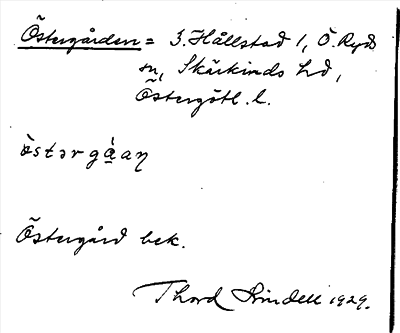 Östergården = 3. Hållstad 1, Ö. Ryds
sn, Skärkinds hd,
Östergötl. l.
östərgǻaŋ
Östergård bek.
Thord Lindell 1929.